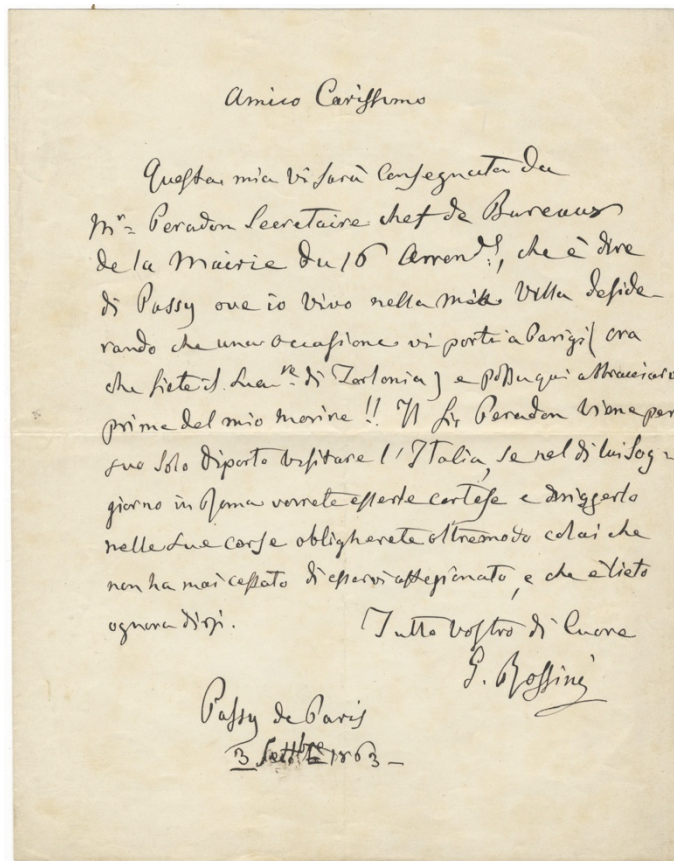 Amico Carissimo
Questa mia vi sarà consegnata da
Mr. Peradon Secretaire chef de Bureaux
de la Mairie du 16 Arrondt., che è dire
di Passy ove io vivo nella mia Villa deside-
rando che una occasione vi porti a Parigi (ora
che siete il di Torlonia) e possa qui abbracciarvi
prima del mio morire!! Il Sir Peradon viene per
suo solo diporto visitare l'Italia, se nel di lui sog-
giorno in Roma vorrete esserle cortese e diriggerlo
nelle sue corse obligherete oltremodo colui che
non ha mai cessato di esservi affezionato, e che è lieto
ognora dirsi.
Tutto vostro di Cuore
G. Rossini
Passy de Paris
3 Settbre 1863 -